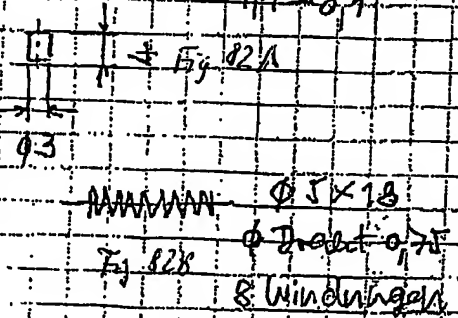 4
Fig 82A
φ3
φ 5 × 18
φ Draht 0,75
Fig 82B
8 Windungen